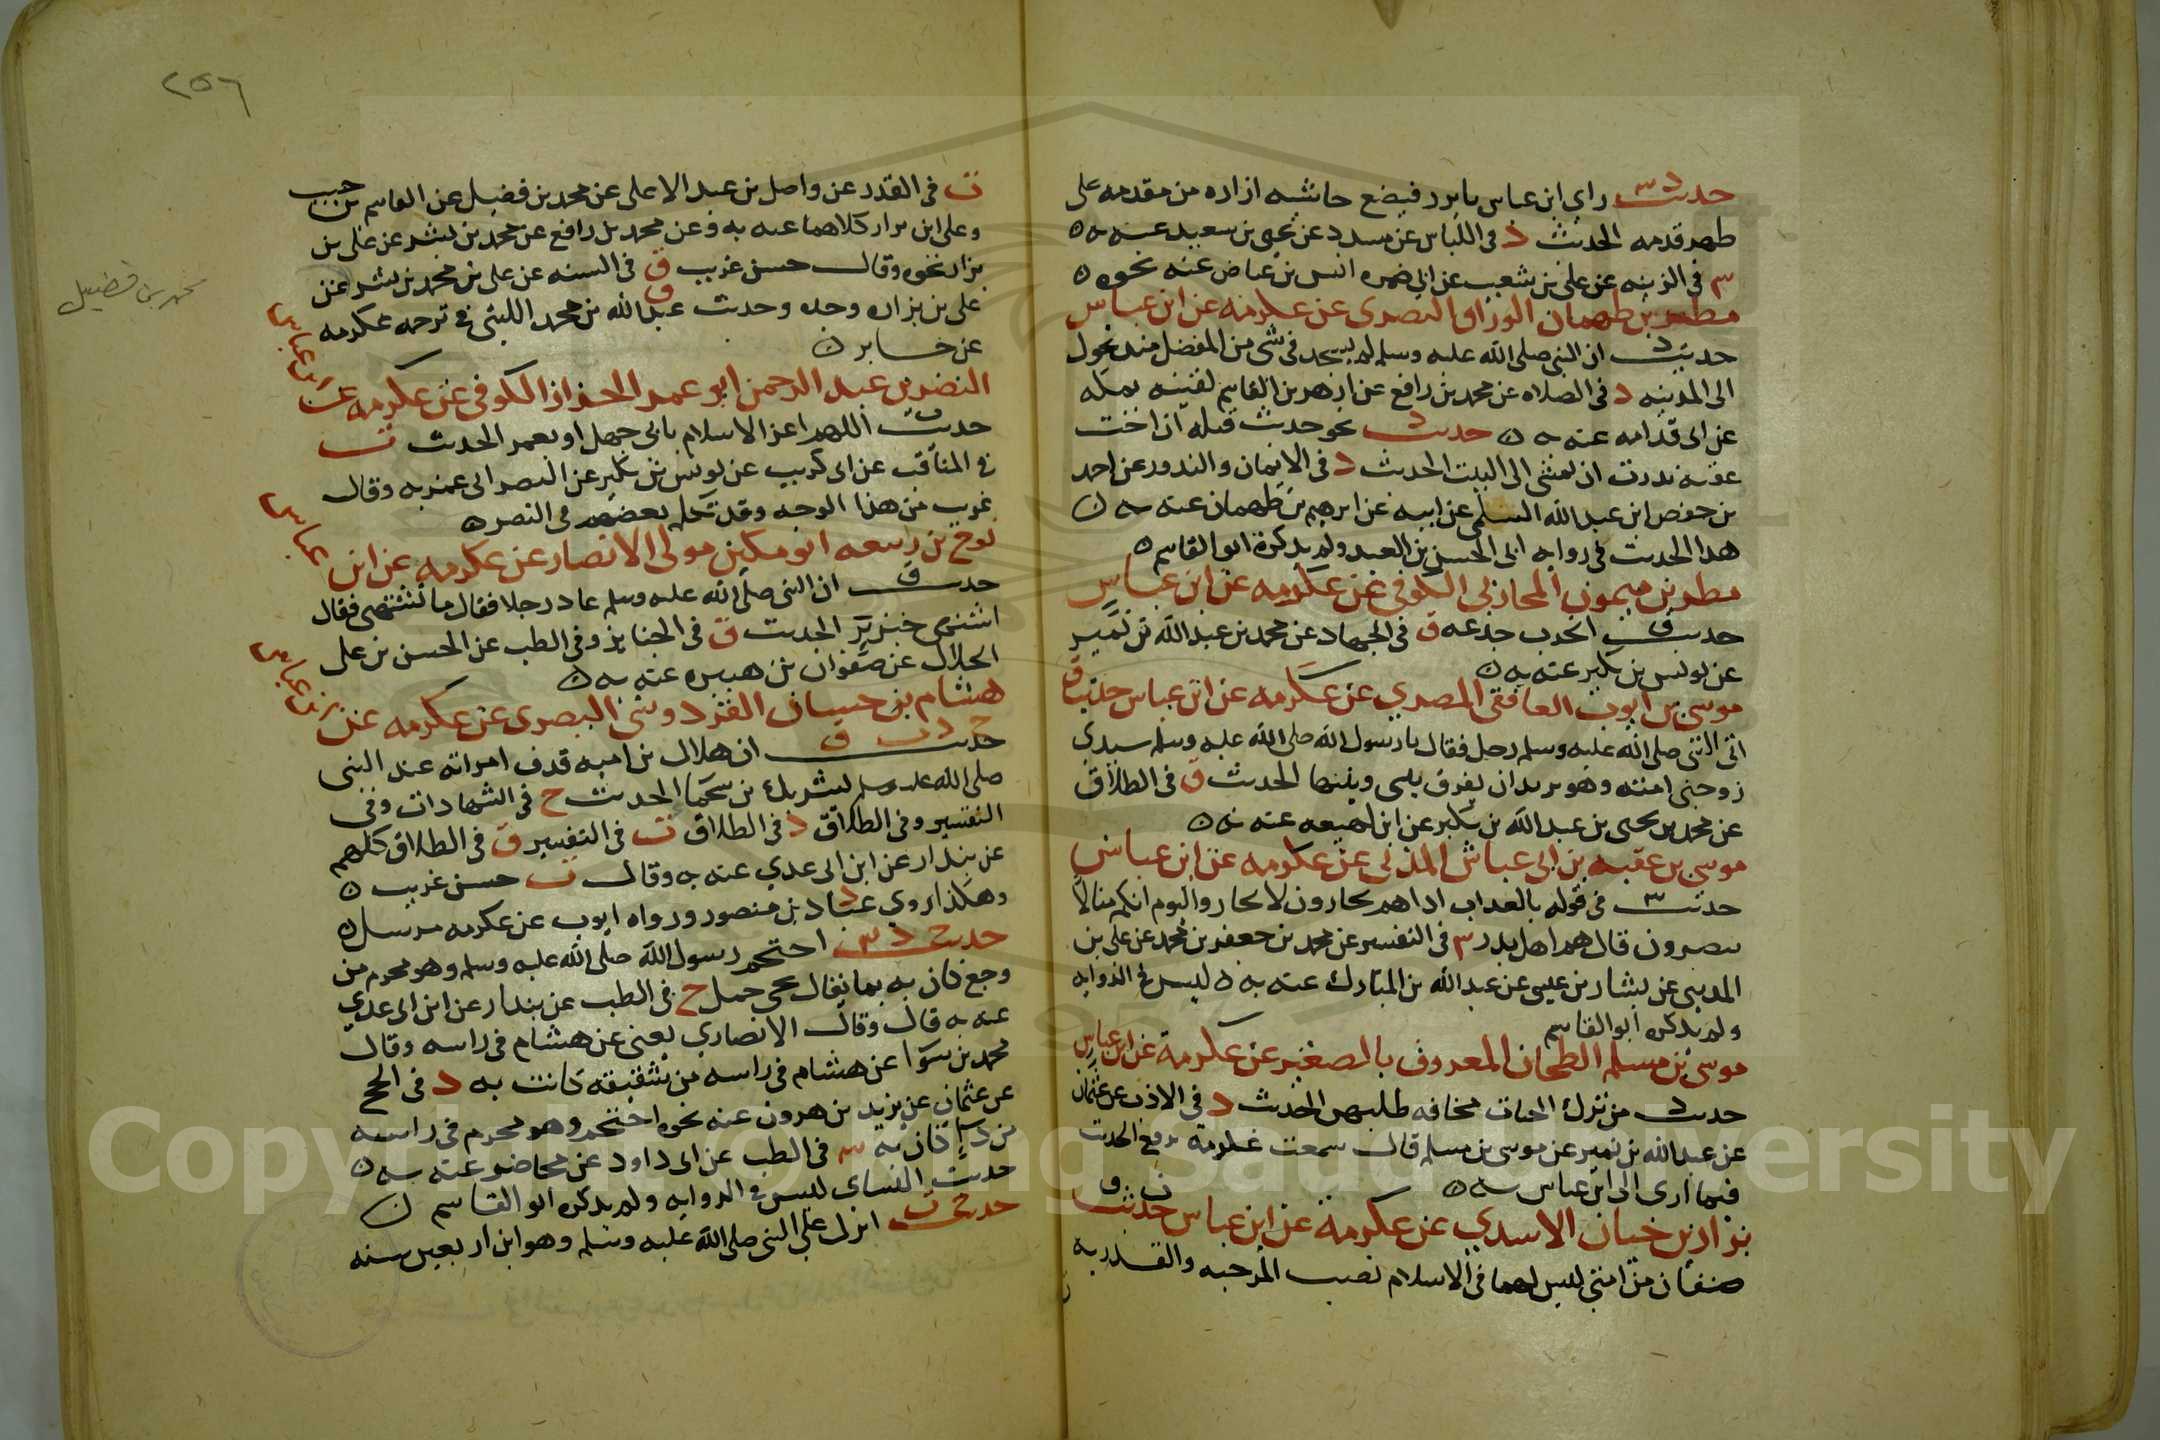 حديث د س راى ابن عباس ياتزر فيضع حاشيه ازاره من مقدمه على
ظهر قدمه الحديث د فى اللباس عن مسدد عن يحيى بن سعيد عنه به ه
س فى الزينه عن على بن شعيب عن ابى ضمره انس بن عياض عنه نحوه ه
مطر بن طهمان الوراق البصرى عن عكرمه عن ابن عباس
حديث د ان النبى صلى الله عليه وسلم لم يسجد فى شى من المفصل منذ تحول
الى المدينه د فى الصلاه عن محمد بن رافع عن ازهر بن القاسم لقيته بمكه
عن ابى قدامه عنه به ه حديث د نحو حديث قبله ان اخت
عقبه نذرت ان تمشى الى البيت الحديث د فى الايمان والنذور عن احمد
بن حفص ابن عبد الله السلمى عن ابيه عن ابرهيم بن طهمان عنه به ه
هذا الحديث فى روايه ابى الحسن بن العبد ولم يذكره ابو القاسم ه
مطر بن ميمون المحاربى الكوفى عن عكرمه عن ابن عباس
حديث ق الحرب خدعه ق فى الجهاد عن محمد بن عبد الله بن نمير
عن يونس بن بكير عنه به ه
موسى بن ايوب الغافقى المصرى عن عكرمه عن ابن عباس حديث ق
اتى النبى صلى الله عليه وسلم رجل فقال يا رسول الله صلى الله عليه وسلم سيدى
زوجنى امته وهو يريد ان يفرق بينى وبينها الحديث ق فى الطلاق
عن محمد بن يحيى بن عبد الله بن بكير عن ابن لهيعه عنه به ه
موسى بن عقبه بن ابى عياش المدنى عن عكرمه عن ابن عباس
حديث س فى قوله بالعذاب اذا هم يجارون لا تجاروا اليوم انكم منا لا
تنصرون قال هم اهل بدر س فى التفسير عن محمد بن جعفر بن محمد عن على بن
المدينى عن بشار بن عيسى عن عبد الله بن المبارك عنه به ه ليس فى الروايه
ولم يذكره ابو القاسم
موسى بن مسلم الطحان المعروف بالصغير عن عكرمه عن ابن عباس
حديث د من ترك الحيات مخافه طلبهن الحديث د فى الادب عن عثمان
عن عبد الله بن نمير عن موسى بن مسلم قال سمعت عكرمه يرفع الحديث
فيما ارى الى ابن عباس به ه
نزار بن حيان الاسدى عن عكرمه عن ابن عباس حديث ت ق
صنفان من امتى ليس لهما فى الاسلام نصيب المرجيه والقدريه
٢٥٦
ت فى القدر عن واصل بن عبد الاعلى عن محمد بن فضيل عن القاسم بن حبيب
وعلى ابن نزار كلاهما عنه به وعن محمد بن رافع عن محمد بن بشر عن على بن
نزار نحوه وقال حسن غريب ق فى السنه عن على بن محمد بن بشر عن
على بن نزار وحده وحديث ق عبد الله بن محمد الليثى فى ترجمه عكرمه
عن جابر ه
محمد بن فضيل
النضر بن عبد الرحمن ابو عمر الخزاز الكوفى عن عكرمه عن ابن عباس
حديث ت اللهم اعز الاسلام بابى جهل او بعمر الحديث ت
فى المناقب عن ابى كريب عن يونس بن بكير عن النضر ابى عمر به وقال
غريب من هذا الوجه وقد تكلم بعضهم فى النضر ه
نوح بن ربيعه ابو مكين مولى الانصار عن عكرمه عن ابن عباس
حديث ق ان النبى صلى الله عليه وسلم عاد رجلا فقال ما تشتهى فقال
اشتهى خبز بر الحديث ق فى الجنايز وفى الطب عن الحسن بن على
الخلال عن صفوان بن هبيره عنه به ه
هشام بن حسان القردوسى البصرى عن عكرمه عن ابن عباس
حديث خ د ت ق ان هلال بن اميه قذف امراته عند النبى
صلى الله عليه وسلم بشريك بن سحما الحديث خ فى الشهادات وفى
التفسير وفى الطلاق د فى الطلاق ت فى التفسير ق فى الطلاق كلهم
عن بندار عن ابن ابى عدى عنه به وقال ت حسن غريب ه
وهكذا روى عباد بن منصور ورواه ايوب عن عكرمه مرسل ه
حديث خ د س احتجم رسول الله صلى الله عليه وسلم وهو محرم من
وجع كان به بما يقال لحى جمل خ فى الطب عن بندار عن ابن ابى عدى
عنه به قال وقال الانصارى يعنى عن هشام فى راسه وقال
محمد بن سوا عن هشام فى راسه من شقيقه كانت به د فى الحج
عن عثمان عن يزيد بن هرون عنه نحوه احتجم وهو محرم فى راسه
من دا كان به س فى الطب عن ابى داود عن محاضر عنه به ه
حديث النساى ليس فى الروايه ولم يذكره ابو القاسم ه
حديث خ ت انزل على النبى صلى الله عليه وسلم وهو ابن اربعين سنه